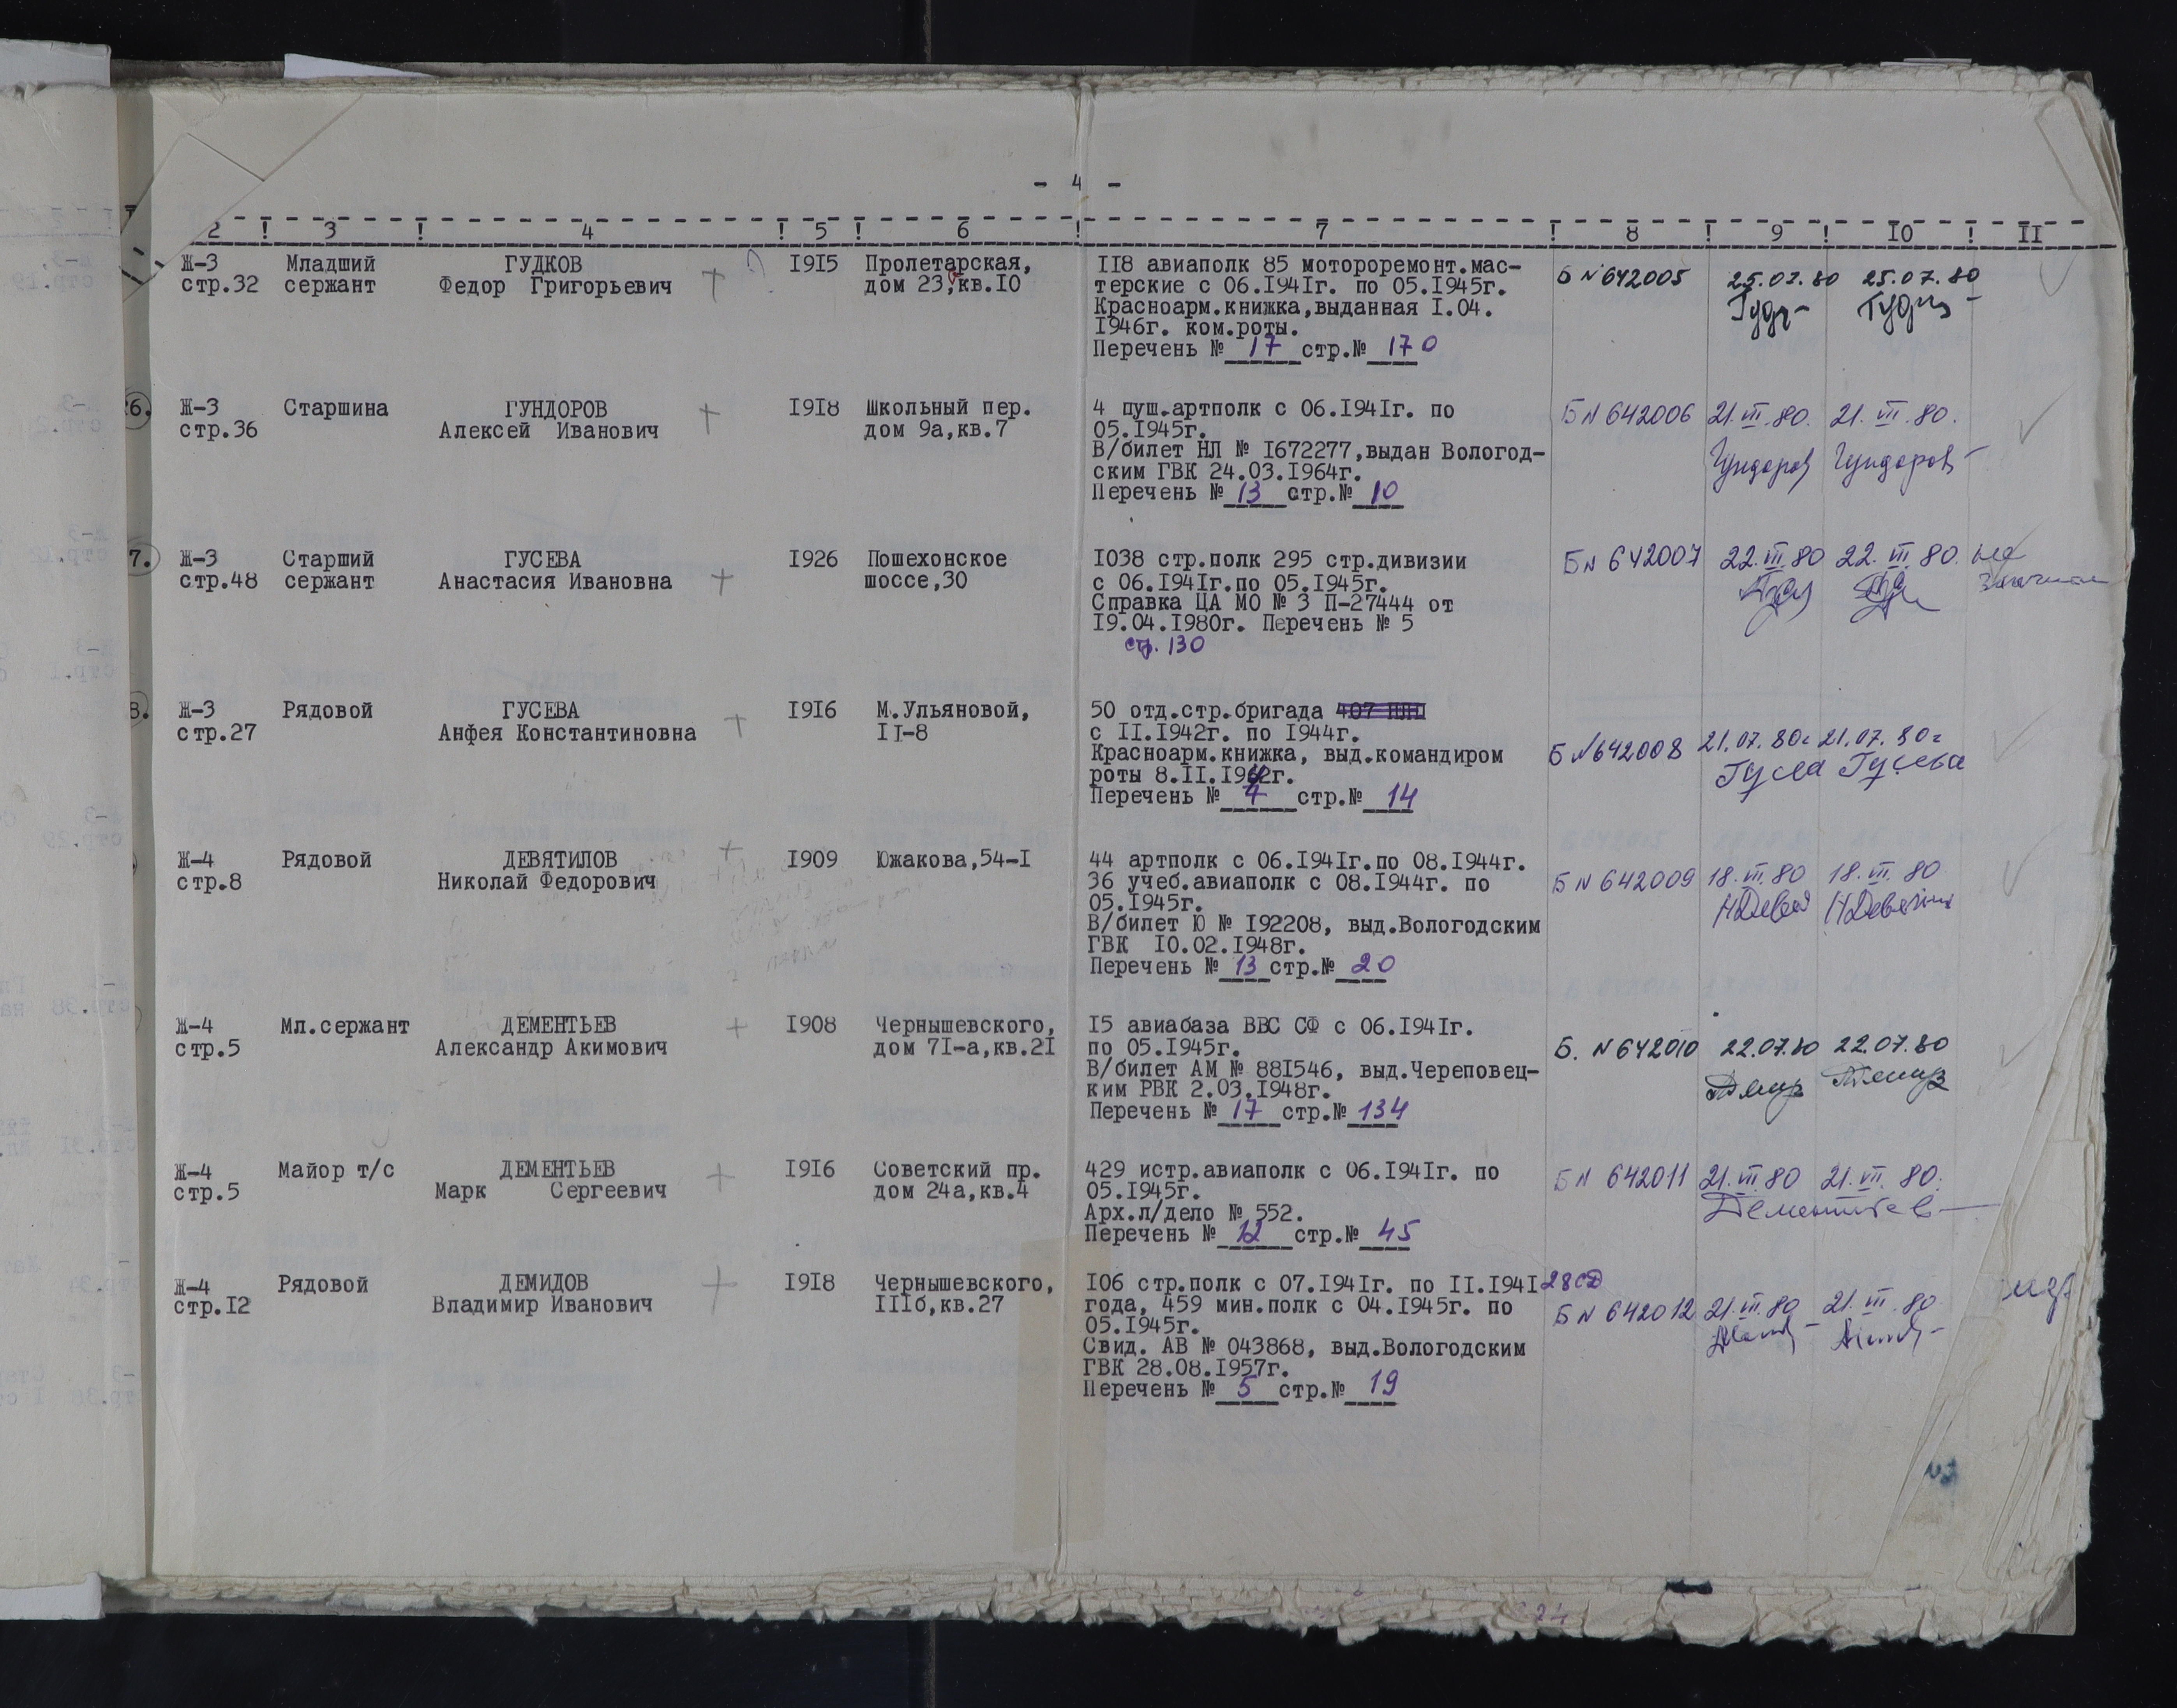 - 4 -
2 ! 3 ! 4 ! 5 ! 6 ! 7 ! 8 ! 9 ! 10 ! 11
Ж-3 Младший ГУДКОВ 1915 Пролетарская, 118 авиаполк 85 мотороремонт.мас- Б № 642005 25.07.80 25.07.80
стр.32 сержант Федор Григорьевич дом 23,кв.10 терские с 06.1941г. по 05.1945г.
Красноарм.книжка,выданная 1.04.
1946г. ком.роты.
Перечень № 17 стр.№ 170
26. Ж-3 Старшина ГУНДОРОВ 1918 Школьный пер. 4 пуш.артполк с 06.1941г. по Б № 642006 21.VII.80. 21.VII.80.
стр.36 Алексей Иванович дом 9а,кв.7 05.1945г.
В/билет НЛ № 1672277,выдан Вологод- Гундоров Гундоров
ским ГВК 24.03.1964г.
Перечень № 13 стр.№ 10
7. Ж-3 Старший ГУСЕВА 1926 Пошехонское 1038 стр.полк 295 стр.дивизии Б № 642007 22.VII.80 22.VII.80.
стр.48 сержант Анастасия Ивановна шоссе,30 с 06.1941г.по 05.1945г.
Справка ЦА МО № 3 П-27444 от
19.04.1980г. Перечень № 5
стр. 130
8. Ж-3 Рядовой ГУСЕВА 1916 М.Ульяновой, 50 отд.стр.бригада
стр.27 Анфея Константиновна 11-8 с 11.1942г. по 1944г. Б № 642008 21.07.80г 21.07.80г
Красноарм.книжка, выд.командиром Гусева Гусева
роты 8.11.1942г.
Перечень № 4 стр.№ 14
Ж-4 Рядовой ДЕВЯТИЛОВ 1909 Южакова,54-1 44 артполк с 06.1941г.по 08.1944г. Б № 642009 18.VII.80 18.VII.80
стр.8 Николай Федорович 36 учеб.авиаполк с 08.1944г. по
05.1945г.
В/билет Ю № 192208, выд.Вологодским
ГВК 10.02.1948г.
Перечень № 13 стр.№ 20
Ж-4 Мл.сержант ДЕМЕНТЬЕВ 1908 Чернышевского, 15 авиабаза ВВС СФ с 06.1941г.
стр.5 Александр Акимович дом 71-а,кв.21 по 05.1945г. Б. № 642010 22.07.80 22.07.80
В/билет АМ № 881546, выд.Череповец-
ким РВК 2.03.1948г.
Перечень № 17 стр.№ 134
Ж-4 Майор т/с ДЕМЕНТЬЕВ 1916 Советский пр. 429 истр.авиаполк с 06.1941г. по Б № 642011 21.VII.80 21.VII.80.
стр.5 Марк Сергеевич дом 24а,кв.4 05.1945г.
Арх.л/дело № 552. Дементьев
Перечень № 12 стр.№ 45
Ж-4 Рядовой ДЕМИДОВ 1918 Чернышевского, 106 стр.полк с 07.1941г. по 11.1941 28 СД
стр.12 Владимир Иванович 111б,кв.27 года, 459 мин.полк с 04.1945г. по Б № 642012 21.VII.80 21.VII.80
05.1945г.
Свид. АВ № 043868, выд.Вологодским
ГВК 28.08.1957г.
Перечень № 5 стр.№ 19